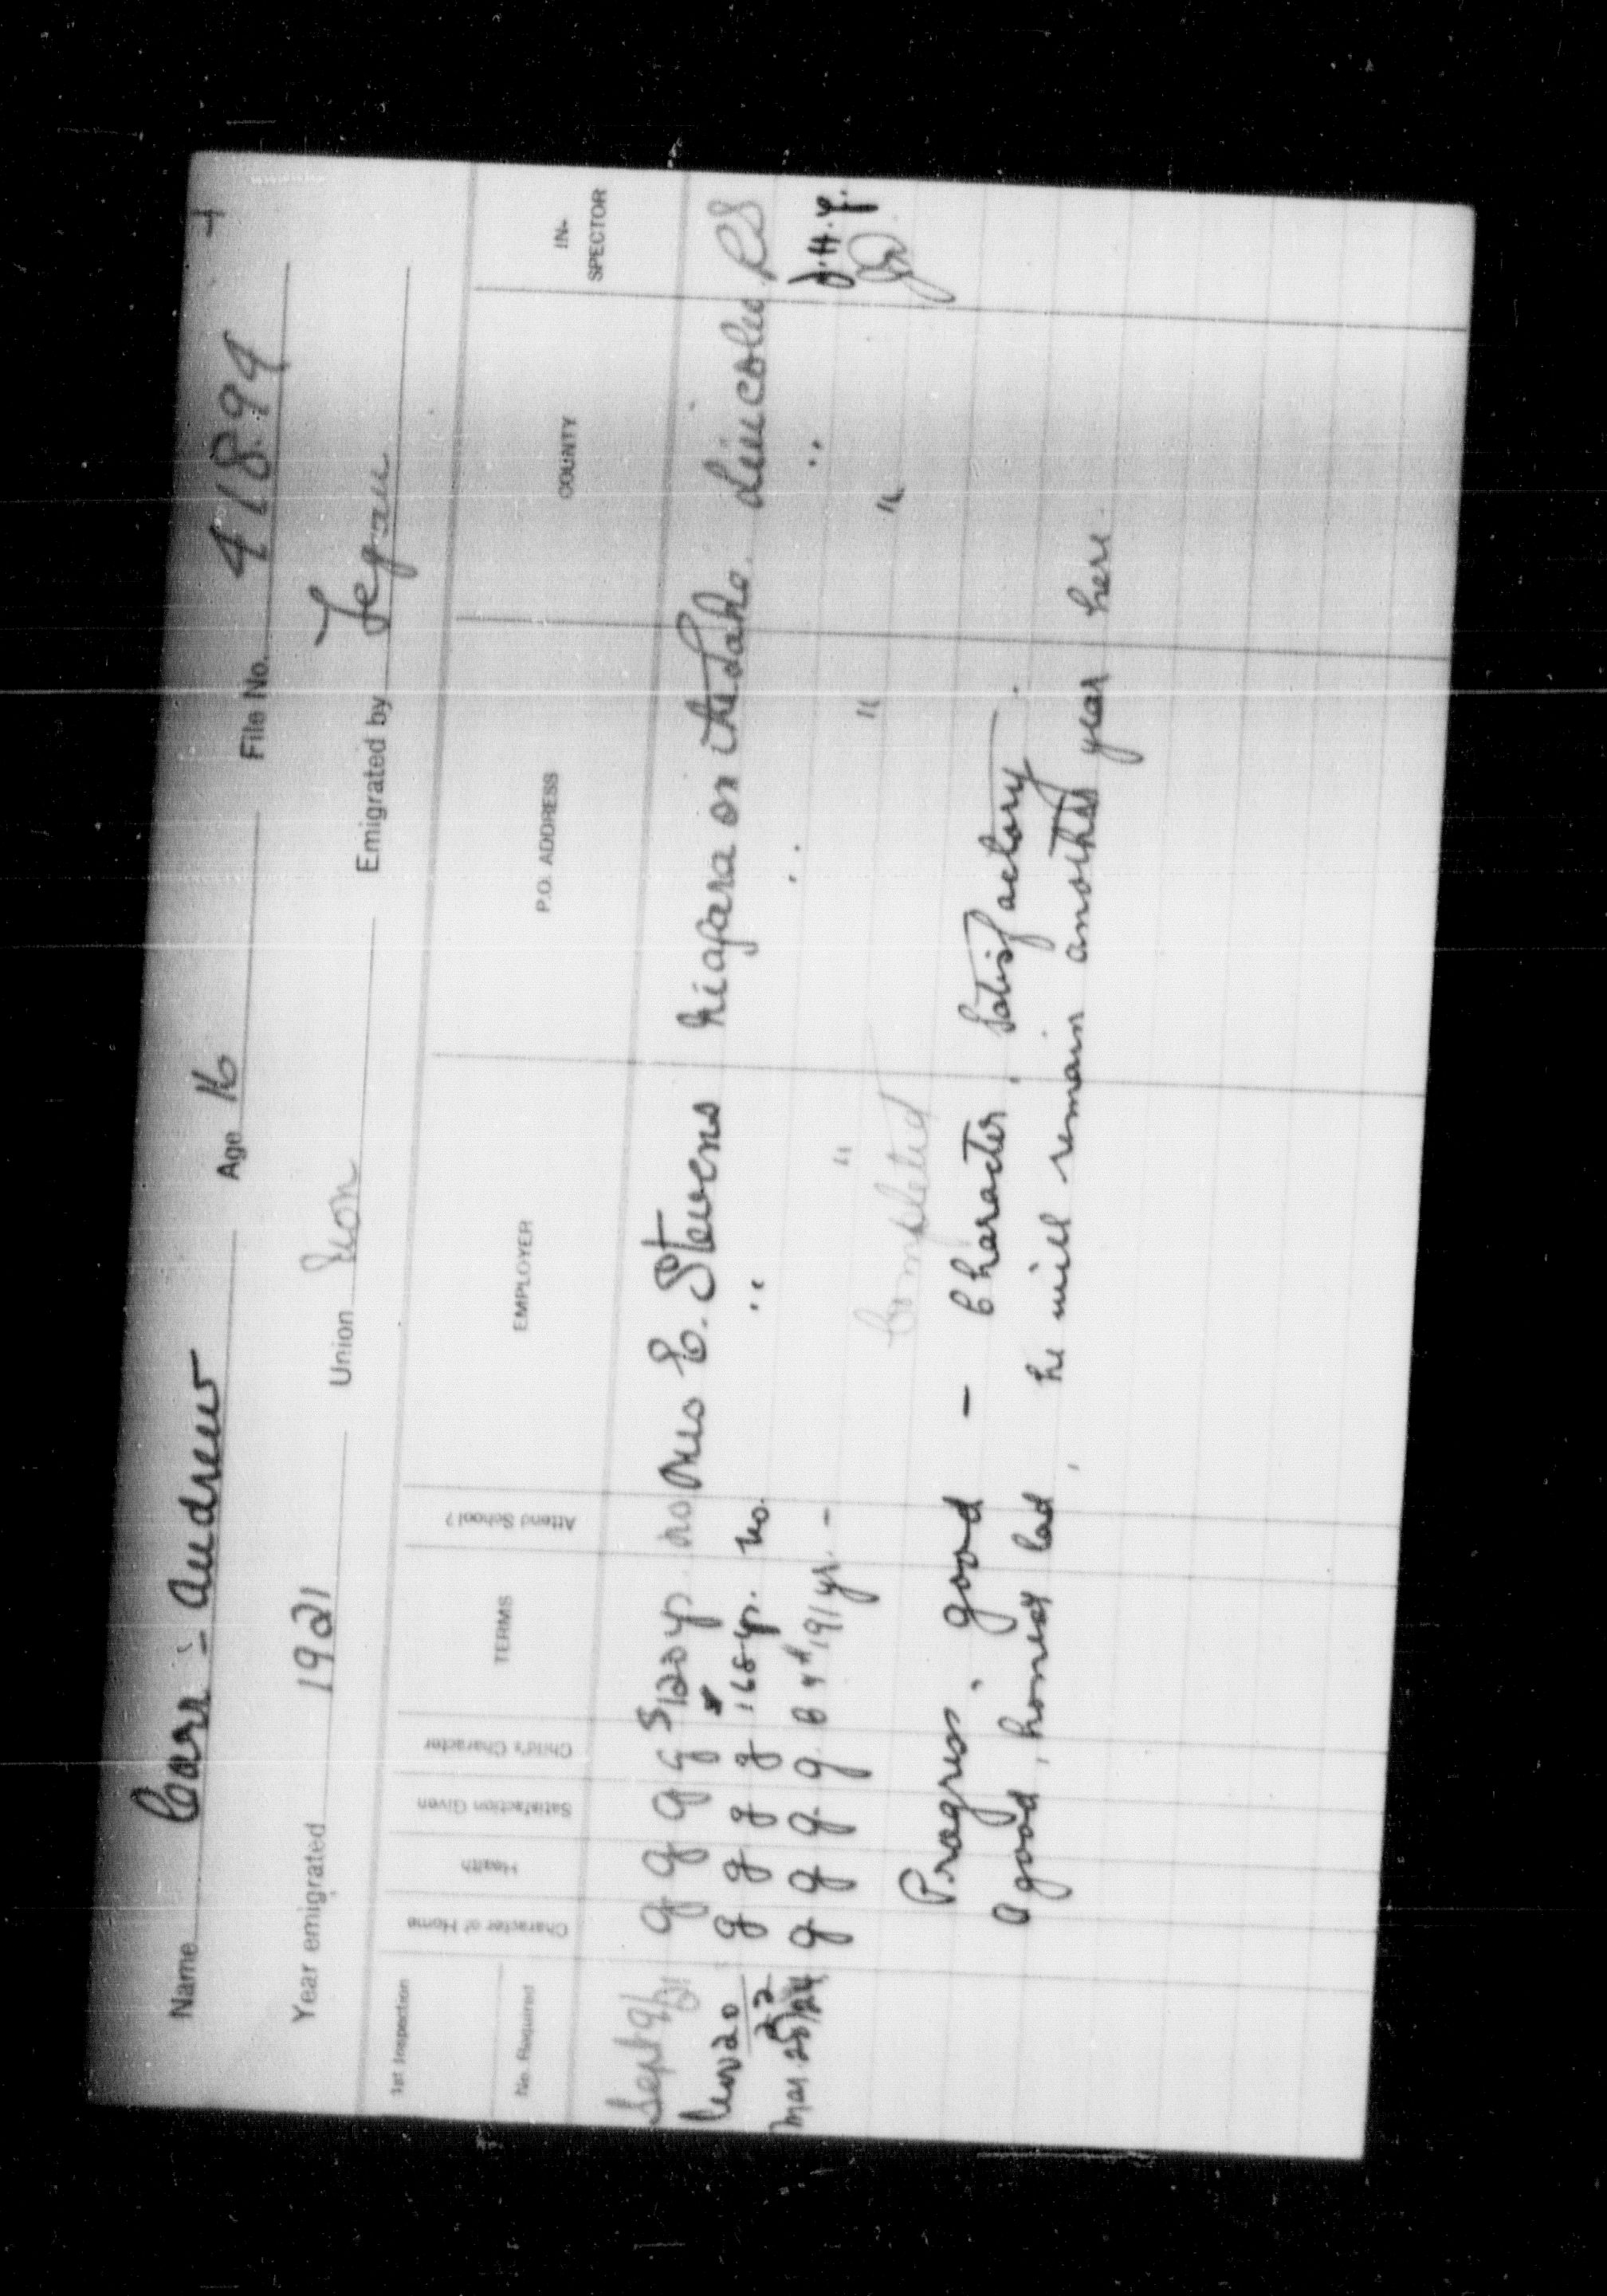 Name Carr - Andrew Age 16 File No. 41894
Year emigrated 1921 Union Non Emigrated by Fegan
1st Inspection
No. Required
Character of Home Health Satisfaction Given Child's Character TERMS Attend School? EMPLOYER P.O. ADDRESS COUNTY IN-SPECTOR
Sept 9/21 g g g g $120 yr. no Mrs E. Stevens Niagara on the Lake. Lincoln RS
20/22 g g g g 168 yr. no. " " " J.H.Y.
Mar. 25/24 g g g g 191 yr. - " " "
Completed
Progress. good - Character. Satisfactory.
A good, honest lad, he will remain another year here.